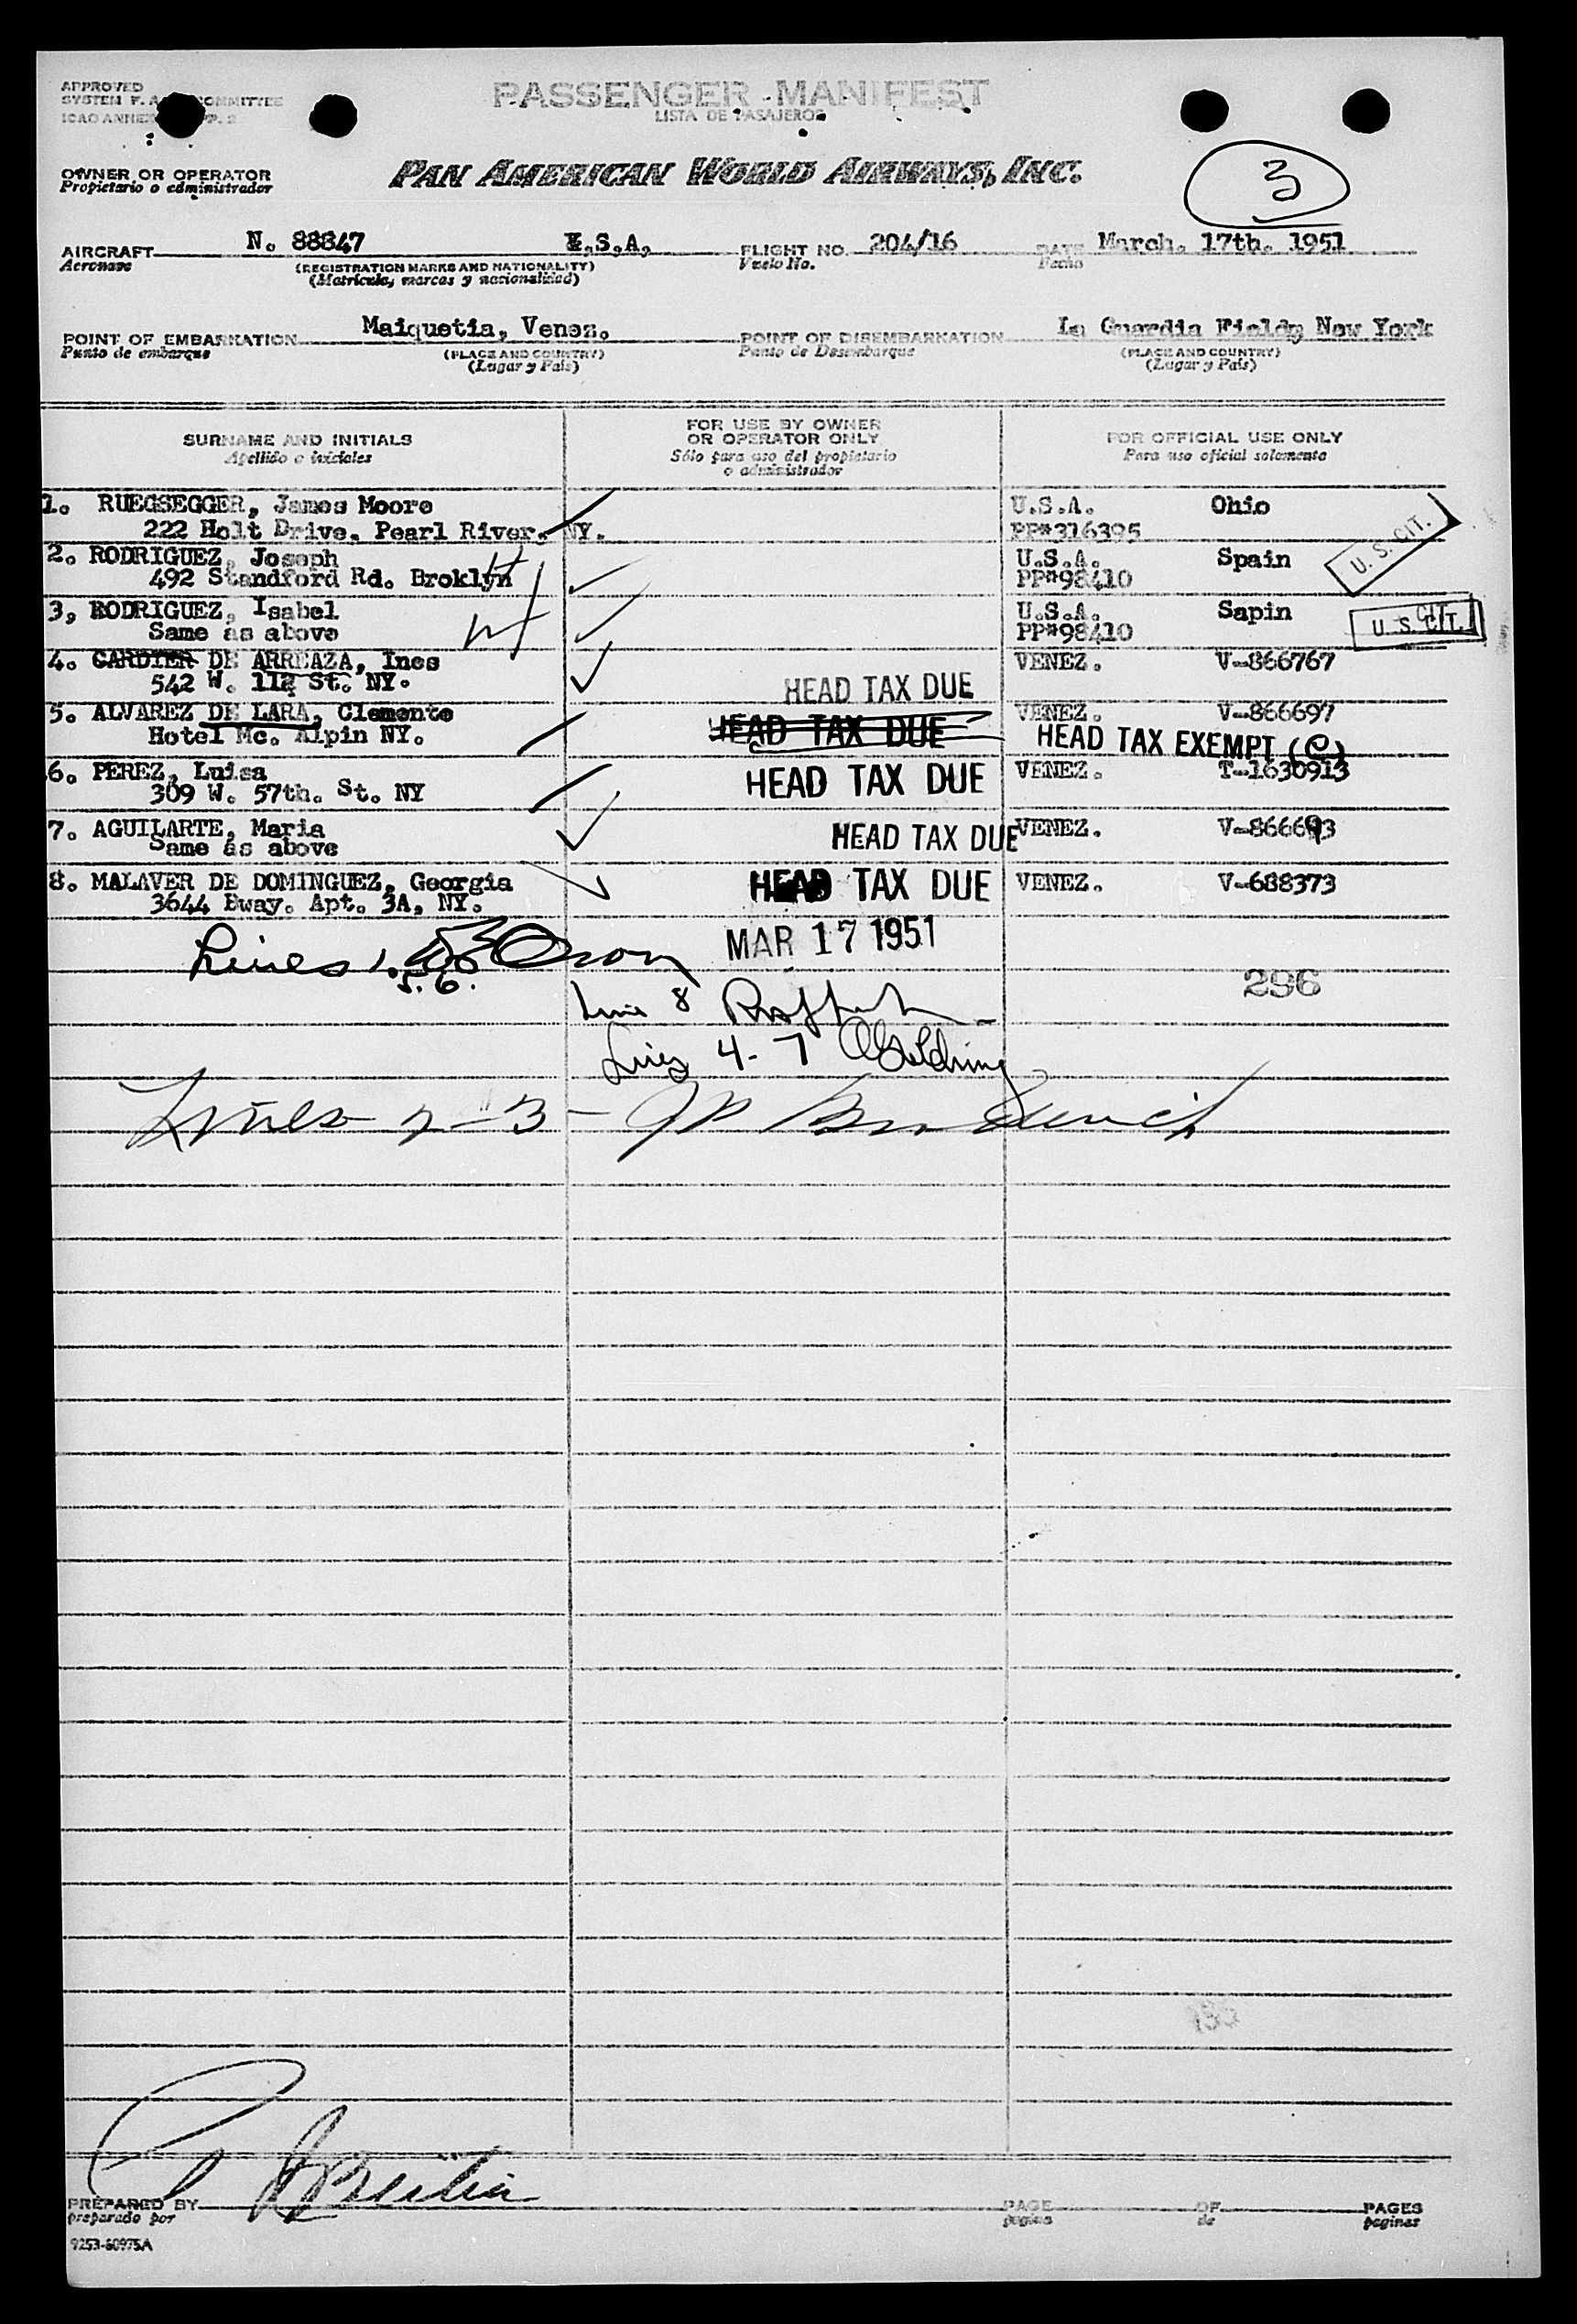 APPROVED
SYSTEM F. A. COMMITTEE
ICAO ANNEX PP. 2
PASSENGER MANIFEST
LISTA DE PASAJEROS
OWNER OR OPERATOR
Propietario o administrador
PAN AMERICAN WORLD AIRWAYS, INC.
3
AIRCRAFT N. 88847 U.S.A. FLIGHT NO. 204/16 DATE March. 17th. 1951
Aeronave (REGISTRATION MARKS AND NATIONALITY) Vuelo No. Fecha
(Matricula, marcas y nacionalidad)
POINT OF EMBARKATION Maiquetia, Venez. POINT OF DISEMBARKATION La Guardia Field, New York
Punto de embarque (PLACE AND COUNTRY) Punto de Desembarque (PLACE AND COUNTRY)
(Lugar y País) (Lugar y País)
SURNAME AND INITIALS
Apellido e iniciales
FOR USE BY OWNER
OR OPERATOR ONLY
Sólo para uso del propietario
o administrador
FOR OFFICIAL USE ONLY
Para uso oficial solamente
1. RUEGSEGGER, James Moore U.S.A. Ohio
222 Holt Drive. Pearl River, NY. PP#316395
2. RODRIGUEZ, Joseph U.S.A. Spain U. S. CIT.
492 Standford Rd. Broklyn PP#98410
3, RODRIGUEZ, Isabel U.S.A. Sapin U. S. CIT.
Same as above PP#98410
4. CARDIER DE ARREAZA, Ines VENEZ. V-866767
542 W. 112 St. NY. HEAD TAX DUE
5. ALVAREZ DE LARA, Clemente HEAD TAX DUE VENEZ. V-866697
Hotel Mc. Alpin NY. HEAD TAX EXEMPT (C)
6. PEREZ, Luisa HEAD TAX DUE VENEZ. T-1630913
309 W. 57th. St. NY
7. AGUILARTE, Maria HEAD TAX DUE VENEZ. V-866693
Same as above
8. MALAVER DE DOMINGUEZ, Georgia HEAD TAX DUE VENEZ. V-688373
3644 Bway. Apt. 3A, NY.
MAR 17 1951
Lines 1.
5. 6.
296
Line 8
Lines 4-7
Lines 2-3-
PREPARED BY PAGE OF PAGES
preparado por pagina de paginas
9253-60975A